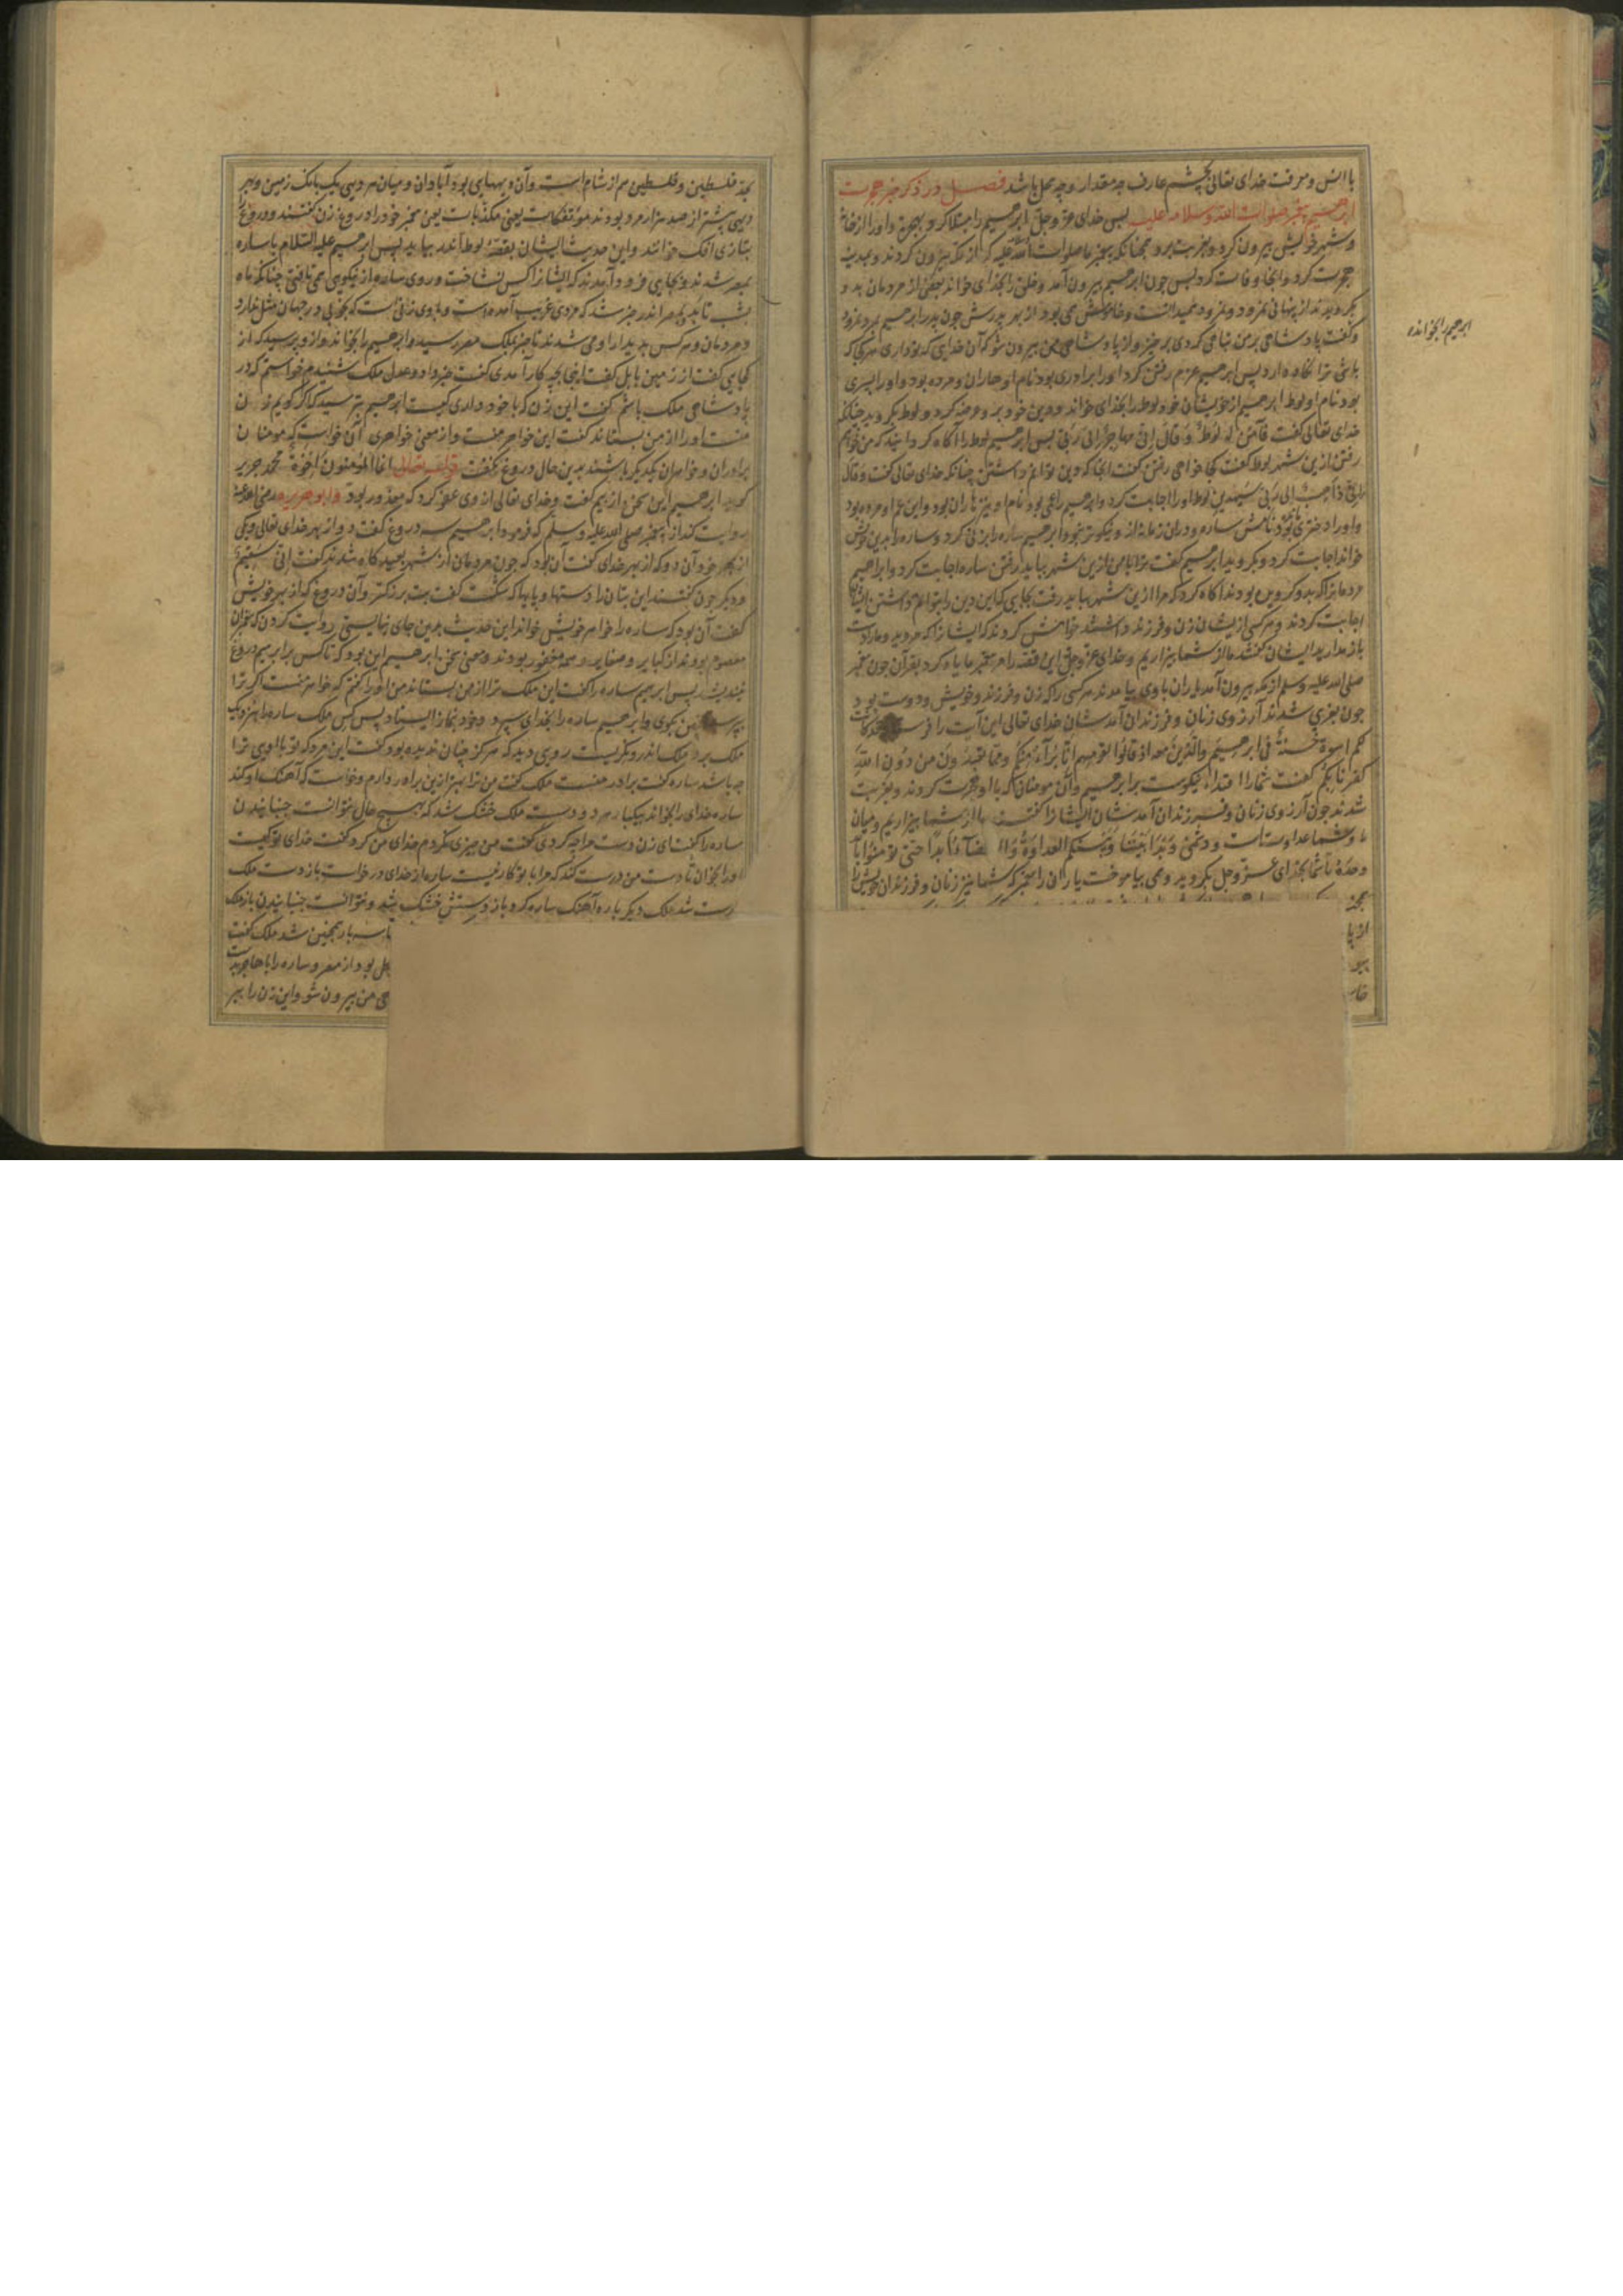 با انس و معرفت خدای تعالی بچشم عارف چه مقدار و چه محل باشد فصل در ذکر خبر هجرت
ابرهیم پیغمبر صلوات الله و سلامه علیه پس خدای عز و جل ابرهیم را مبتلا کرد بهجرة و اورا از خانه
و شهر خویش بیرون کرد و بغربت برد همچنانکه پیغمبر ما صلوات الله علیه که از مکه بیرون کردند و بمدینه
هجرت کرد و آنجا وفات کرد پس چون ابرهیم بیرون آمد و خلق را بخدای خواند بعضی از مردمان بدو
بگرویدند از پنهانی نمرود و نمرود نمیدانست و خاموش می بود از بهر پدرش چون پدر ابرهیم بمرد نمرود
و کفت پادشاهی بر من تباهی کردی برخیز و از پادشاهی من بیرون شو که آن خدایی که تو داری هر کجا که
باشی ترا نکاه دارد پس ابرهیم عزم رفتن کرد و اورا برادری بود نام او هاران و مرده بود و اورا پسری
بود نام او لوط ابرهیم از خویشان خود لوط را بخدای خواند و دین خود برو عرضه کرد و لوط بکروید چنانکه
خدای تعالی کفت فآمن له لوط و قال انی مهاجر الی ربی پس ابرهیم لوط را آکاه کردانید که من خواهم
رفتن ازین شهر لوط کفت کجا خواهی رفتن کفت آنجا که دین توانم داشتن چنانکه خدای تعالی کفت و قال
انی ذاهب الی ربی سیهدین لوط اورا اجابت کرد و ابرهیم را عمی بود نام او نیز هاران بود و این عم او مرده بود
و اورا دختری بود نامش ساره و در آن زمانه از و نیکوتر نبود ابرهیم ساره را بزنی کرد و ساره را بدین خویش
خواند اجابت کرد و بکروید ابرهیم کفت ترا با من ازین شهر بباید رفتن ساره اجابت کرد و ابراهیم
مردمانرا که بدو کرویده بودند آکاه کرد که مرا ازین شهر بباید رفت بجایی که این دین را بتوانم داشتن ایشان
اجابت کردند و هر کسی از ایشان زن و فرزند داشتند خواهش کردند که ایشانرا که مروید و مارا دست
باز مدارید ایشان کفتند ما از شما بیزاریم و خدای عز و جل این قصه را مر پیغمبر ما یاد کرد بقرآن چون پیغمبر
صلی الله علیه و سلم از مکه بیرون آمد یاران با وی بیامدند هر کسی را که زن و فرزند و خویش و دوست بود
چون بغربی شدند آرزوی زنان و فرزندان آمدشان خدای تعالی این آیت را فرستاد قد کانت
لکم اسوة حسنة فی ابرهیم والذین معه اذ قالوا لقومهم انا برآء منکم و مما تعبدون من دون الله
کفرنا بکم کفت شمارا اقتدا نیکوست بر ابرهیم و آن مومنان که با او هجرت کردند و بغربت
شدند چون آرزوی زنان و فرزندان آمدشان ایشانرا کفتند ما از شما بیزاریم و میان
ما و شما عداوتست و دشمنی و بدا بیننا و بینکم العداوة والبغضآء ابدا حتی تؤمنوا بالله
وحده تا شما بخدای عز و جل بکروید و می بیاموخت یاران را پیغمبر که شما نیز زنان و فرزندان خویش را
ابرهیم را بخوانده
بحد فلسطین و فلسطین هم از شام است و آن دیهایی بود آبادان و میان هر دیهی یک بانک زمین و بهر
دیهی بیشتر از صد هزار مرد بودند مؤتفکات یعنی مکذبات یعنی پیغمبر خود را دروغ زن کفتند و دروغ را
بتازی افک خوانند و این حدیث ایشان بقصه لوط اندر بیاید پس ابرهیم علیه السلام با ساره
بمصر شدند و بجایی فرود آمدند که ایشانرا کس نشناخت و روی ساره از نیکویی همی تافتی چنانکه ماه
بشب تابد بمصر اندر خبر شد که مردی غریب آمده است و با وی زنی است که بخوبی در جهان مثل ندارد
و مردمان و هر کس بدیدار او می شدند تا خبر بملک مصر رسید و ابرهیم را بخواند و از و پرسید که از
کجایی کفت از زمین بابل کفت اینجا بچه کار آمدی کفت خبر داد و عدل ملک شنیدم خواستم که در
پادشاهی ملک باشم کفت این زن که با خود داری کیست ابرهیم بترسید که اکر کویم زن
منست اورا از من بستاند کفت این خواهر منست و از معنی خواهری آن خواست که مومنان
برادران و خواهران یکدیکر باشند بدین حال دروغ نکفت قوله تعالی انما المؤمنون اخوة محمد جریر
کوید ابرهیم این سخن از بیم کفت و خدای تعالی از وی عفو کرد که معذور بود و ابو هریره رضی الله عنه
روایت کند از پیغمبر صلی الله علیه و سلم که فرمود ابرهیم سه دروغ کفت دو از بهر خدای تعالی و یکی
از بهر خود آن دو که از بهر خدای کفت آن بود که چون مردمان از شهر بعیدکاه شدند کفت انی سقیم
و دیکر چون کفتند این بتان را دستها و پایها که شکست کفت بت بزرکتر و آن دروغ که از بهر خویش
کفت آن بود که ساره را خواهر خویش خواند این حدیث بدین جای نبایستی روایت کردن که پیغمبران
معصوم بودند از کبایر و صغایر و همه مغفور بودند و معنی سخن ابرهیم این بود که تا کس بر ابرهیم دروغ
نبندیشد پس ابرهیم ساره را کفت این ملک ترا از من بستاند من اورا کفتم که خواهر منست اکر ترا
پرسد همین کوی و ابرهیم ساره را بخدای سپرد و خود بنماز ایستاد پس کس ملک ساره را بنزدیک
ملک برد ملک اندرو بنکریست رویی دید که هرکز چنان ندیده بود کفت این مرد که تو با اویی ترا
چه باشد ساره کفت برادر منست ملک کفت من ترا بهتر ازین برادر دارم و خواست که آهنک او کند
ساره خدای را بخواند بیکبار هر دو دست ملک خشک شد که بهیچ حال نتوانست جنبانیدن
ساره را کفت ای زن دست مرا چه کردی کفت من چیزی نکردم خدای من کرد کفت خدای تو کیست
اورا بخوان تا دست من درست کند که مرا با تو کار نیست ساره از خدای درخواست باز دست ملک
درست شد ملک دیکر باره آهنک ساره کرد باز دستش خشک شد و نتوانست جنبانیدن باز ملک
تا سه بار همچنین شد ملک کفت
بود از مصر و ساره را با هاجر بدست
من بیرون شو و این زن را ببر